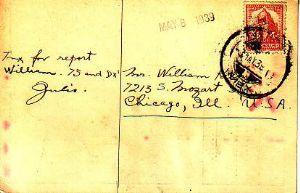 MAY 8 1939
Tnx for report
William. 73 and DX
Julio.
Mr. William
7213 S. Mozart
Chicago, Ill. U.S.A.